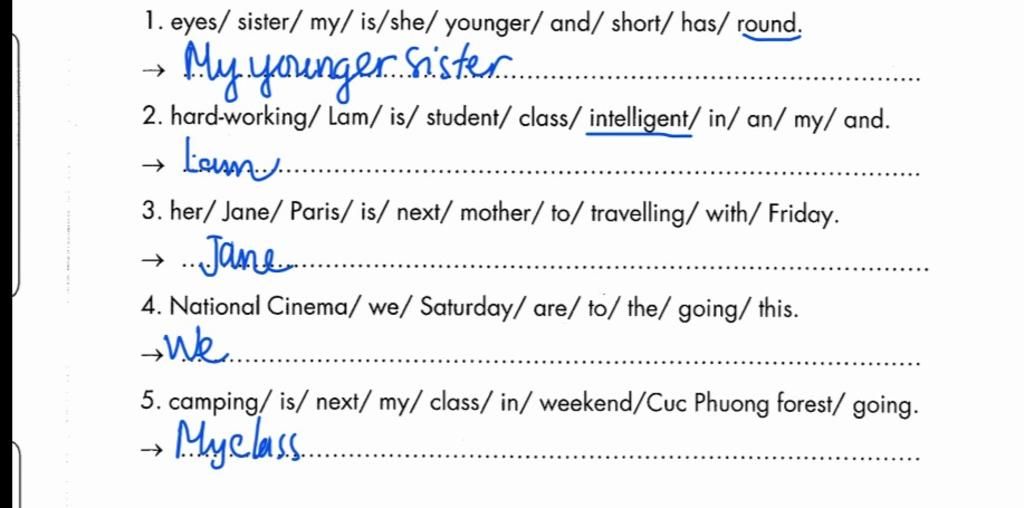 1. eyes/ sister/ my/ is/she/ younger/ and/ short/ has/ round.
→ My younger sister
2. hard-working/ Lam/ is/ student/ class/ intelligent/ in/ an/ my/ and.
→ Lam
3. her/ Jane/ Paris/ is/ next/ mother/ to/ travelling/ with/ Friday.
→ Jane
4. National Cinema/ we/ Saturday/ are/ to/ the/ going/ this.
→ We
5. camping/ is/ next/ my/ class/ in/ weekend/Cuc Phuong forest/ going.
→ My class